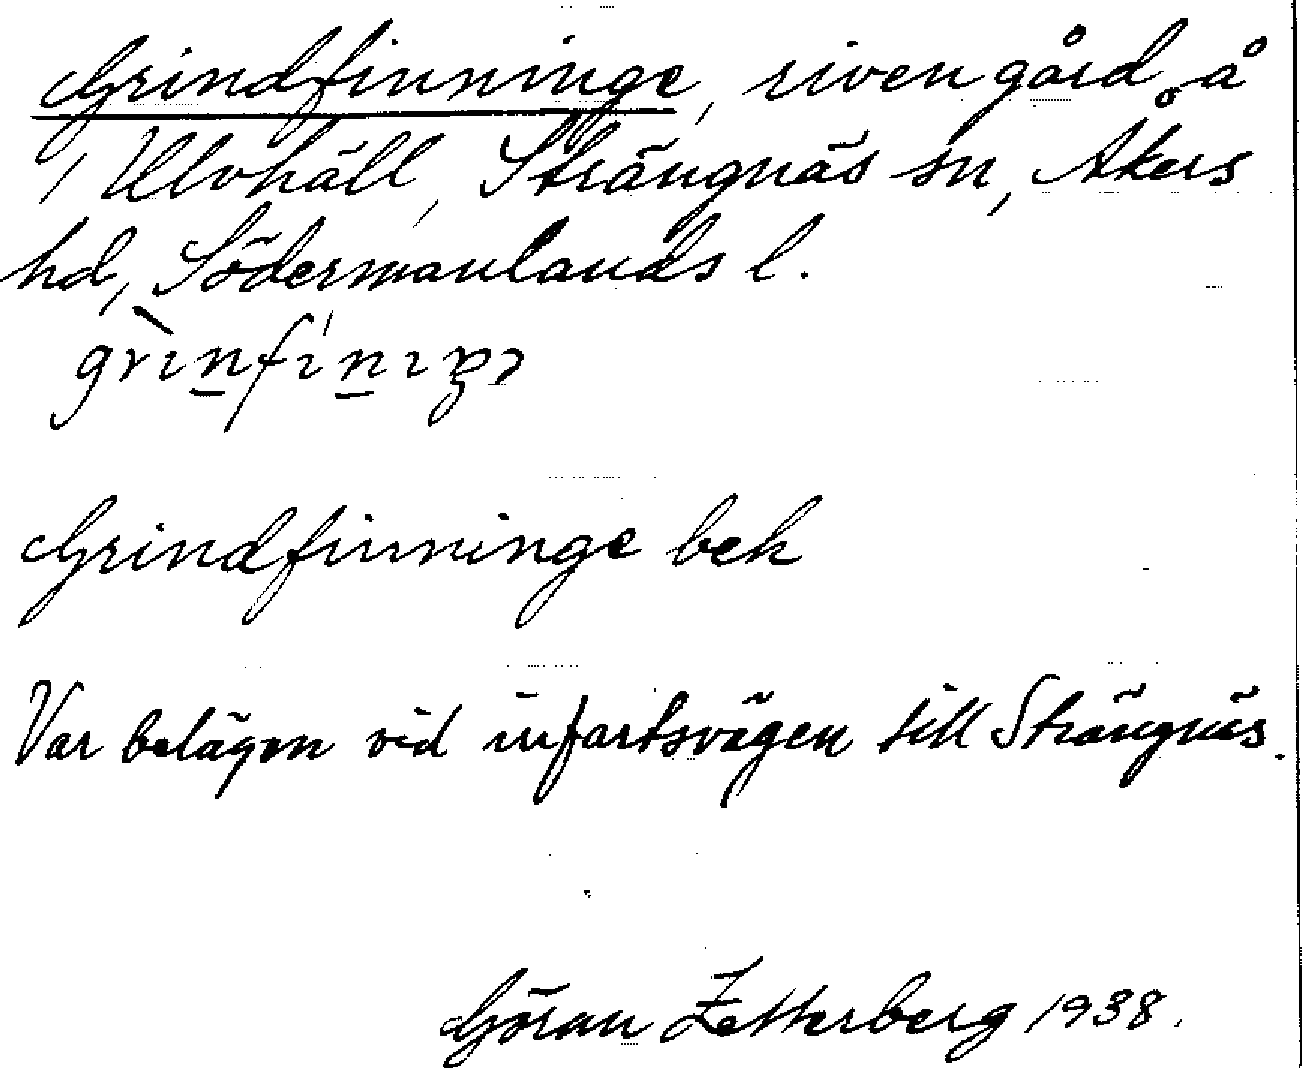 Grindfinninge, riven gård å
1 Ulvhäll, Strängnäs sn, Åkers
hd, Södermanlands l.
Grindfinninge bek
Var belägen vid infartsvägen till Strängnäs.
Göran Zetterberg 1938.